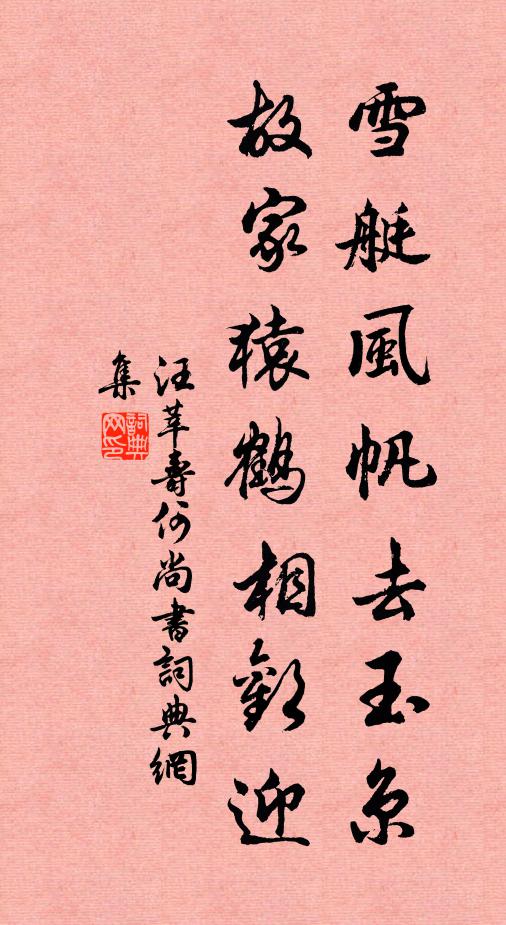 雪艇風帆去玉京
故家猿鶴相歡迎
汪莘壽何尚書詞典網
集
詞典
网印